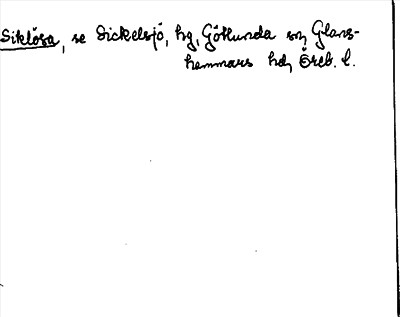 Siklösa, se Sickelsjö, hg, Götlunda sn, Glans-
hammars hd, Öreb. l.